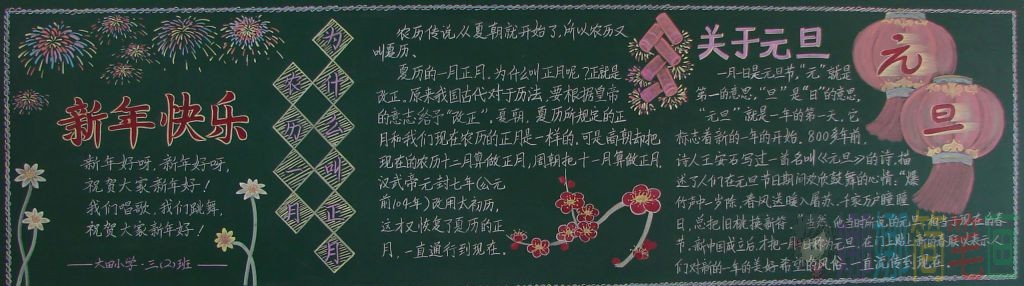 新年快乐
新年好呀，新年好呀，
祝贺大家新年好！
我们唱歌，我们跳舞，
祝贺大家新年好！
大田小学·三(2)班
农历一月
为什么叫正月
农历传说从夏朝就开始了，所以农历又
叫夏历。
夏历的一月正月。为什么叫正月呢？正就是
改正。原来我国古代对于历法，要根据皇帝
的意志给予“改正”。夏朝，夏历所规定的正
月和我们现在农历的正月是一样的。可是商朝却把
现在的农历十二月算做正月，周朝把十一月算做正月。
汉武帝元封七年(公元
前104年)改用太初历，
这才又恢复了夏历的正
月，一直通行到现在。
关于元旦
一月一日是元旦节，“元”就是
第一的意思，“旦”是“日”的意思，
“元旦”就是一年的第一天。它
标志着新的一年的开始。800多年前，
诗人王安石写过一首名叫《元旦》的诗，描
述了人们在元旦节日期间欢欣鼓舞的心情：“爆
竹声中一岁除，春风送暖入屠苏，千家万户瞳瞳
日，总把旧桃换新符。”当然，他当时所说的元旦相当于现在的春
节，新中国成立后才把一月一日称为元旦。在门上贴上新的春联以表示人
们对新的一年的美好希望的风俗一直流传到现在。
元
旦